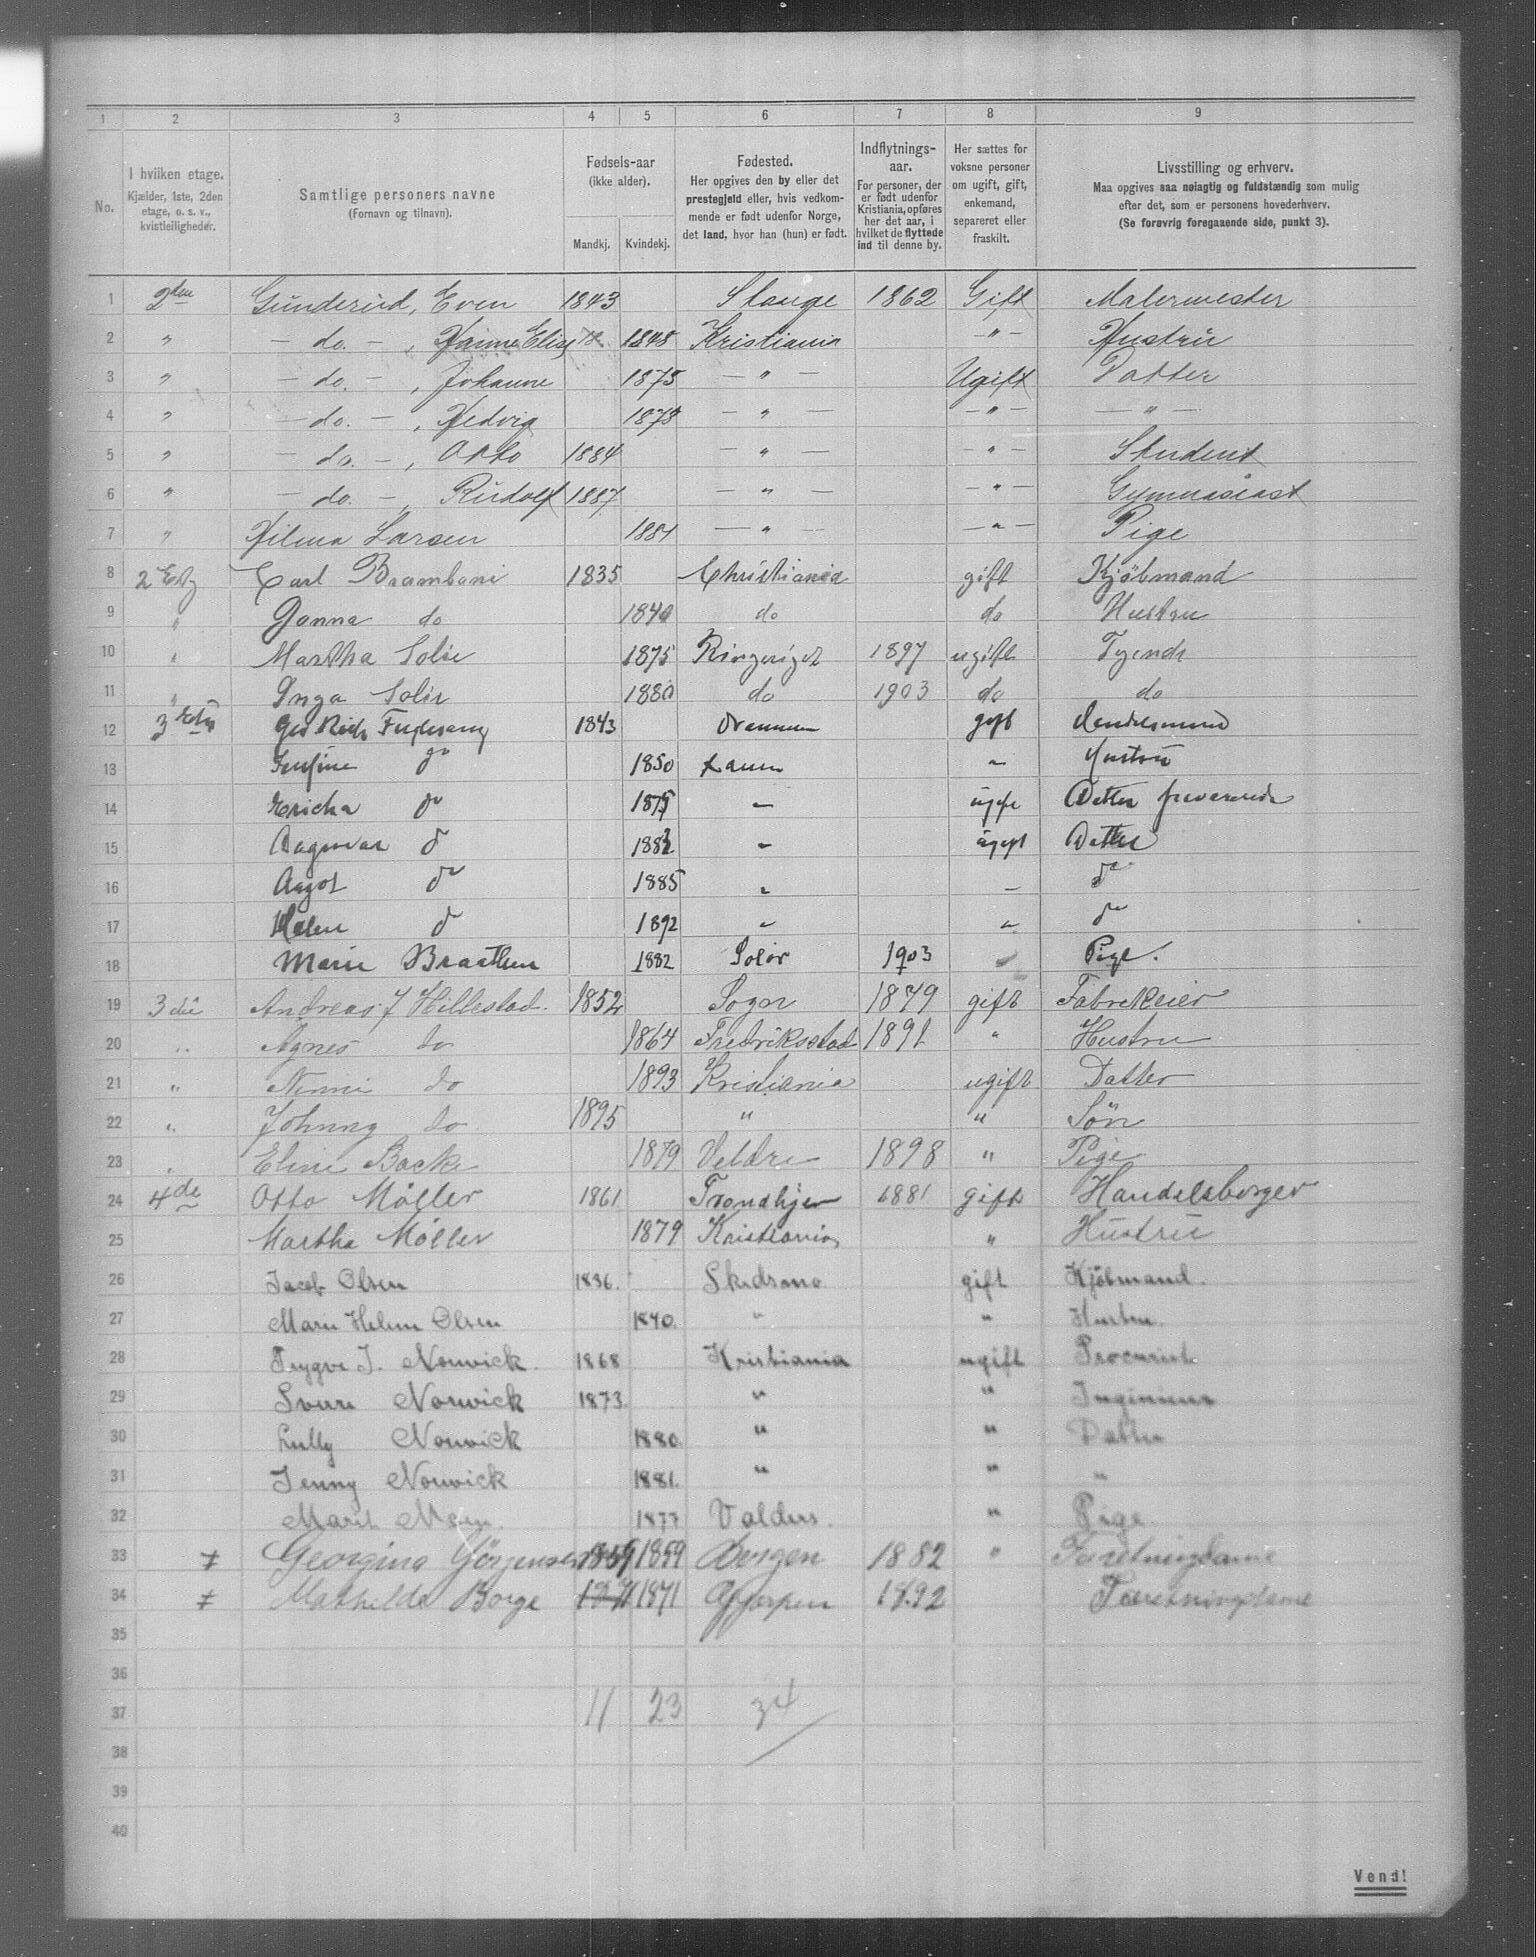 1 2 3 4 5 6 7 8 9
No.
I hviiken etage.
Kjælder, 1ste, 2den
etage, o. s. v.,
kvistleiligheder.
Samtlige personers navne
(Fornavn og tilnavn).
Fødsels-aar
(ikke alder).
Mandkj. Kvindekj.
Fødested.
Her opgives den by eller det
prestegjeld eller, hvis vedkom-
mende er født udenfor Norge,
det land, hvor han (hun) er født.
Indflytnings-
aar.
For personer, der
er født udenfor
Kristiania, opføres
her det aar, i
hvilket de flyttede
ind til denne by.
Her sættes for
voksne personer
om ugift, gift,
enkemand,
separeret eller
fraskilt.
Livsstilling og erhverv.
Maa opgives saa nøiagtig og fuldstændig som mulig
efter det, som er personens hovederhverv.
(Se forøvrig foregaaende side, punkt 3).
1 2den Gunderud, Even 1843 Stange 1862 Gift Malermester
2 " - do. - , Hanna Elise 1848 Kristiania - " - Hustru
3 " - do. - , Johanne 1875 - " - Ugift Datter
4 " - do. - , Hedvig 1878 - " - - " - - " -
5 " - do. - , Otto 1884 - " - - " - Student
6 " - do. - , Rudolf 1887 - " - - " - Gymnasiast
7 " Hilma Larsen 1881 - " - - " - Pige
8 2 Etg Carl Brambani 1835 Christiania gift Kjøbmand
9 " Janna do 1840 do do Hustru
10 " Martha Solie 1875 Ringeriget 1897 ugift Tyende
11 " Inga Solie 1880 do 1903 do do
12 3 1843 Drammen gift Handelsmand
13 do 1850 " Hustru
14 Ericha do 1875 " ugift Datter
15 Dagmar do 1883 " ugift Datter
16 Aagot do 1885 " " do
17 Helen do 1892 " " do
18 Marie Braathen 1882 Solør 1903 " Pige.
19 3die Andreas J Hillestad. 1852 Sogn 1879 gift Fabrikeier
20 " Agnes do 1864 Fredriksstad 1891 " Hustru
21 " Ninni do 1893 Kristiania ugift Datter
22 " Johnny do 1895 " " Søn
23 " Eline Bakke 1879 Veldre 1898 " Pige
24 4de Otto Møller 1861 Trondhjem 1881 gift Handelsborger
25 Martha Møller 1879 Kristiania " Hustru
26 Jacob Olsen 1836. Skedsmo gift Kjøbmand.
27 Marie Helene Olsen 1840. " " Hustru.
28 Trygve J. Norwick. 1868 Kristiania ugift Procurist
29 Sverre Norwick 1873. " " Ingeniør
30 Lully Norwick 1880. " " Datter
31 Jenny Norwick 1881. " " "
32 Marit 1877 Valders. " Pige
33 ≠ Georgina Jörgensen 1859 1859 Bergen 1882 " Foretningdame
34 ≠ Mathilde Borge 1871 1871 Gjerpen 1892 Foretningdame
35
36
37 11 23 34
38
39
40
Vend!